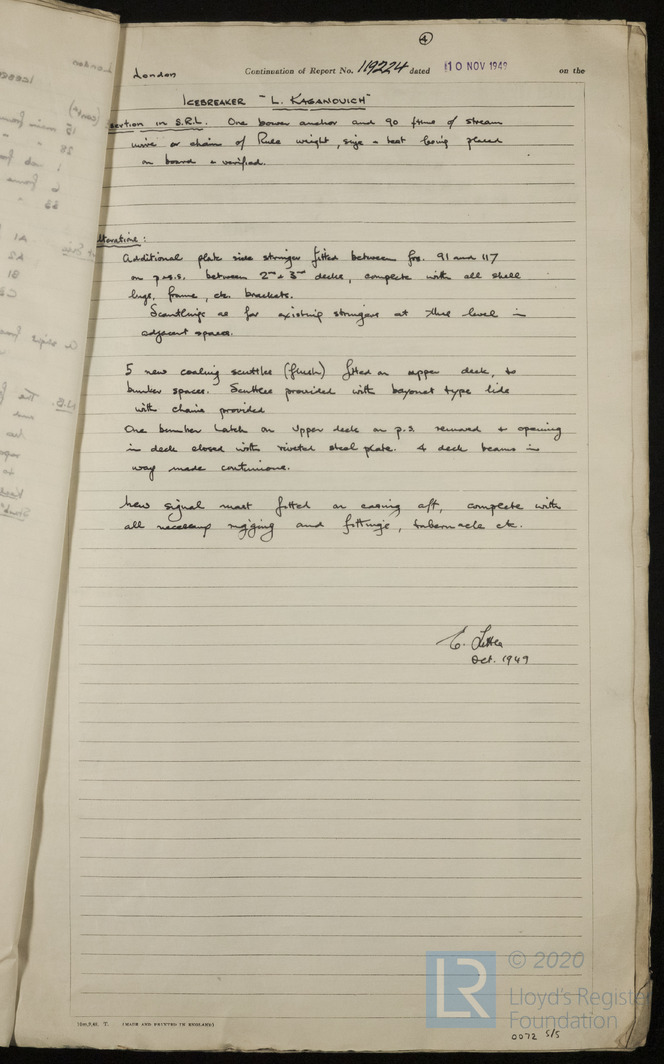 4
London Continuation of Report No. 119224 dated 10 NOV 1949 on the
ICEBREAKER "L. KAGANOVICH"
sertion in S.R.L. One bower anchor and 90 fms of stream
wire or chain of Rule weight, size & test being placed
on board & verified.
lterations:
Additional plate side stringer fitted between frs. 91 and 117
on p.&s.s. between 2nd & 3rd decks, complete with all shell
lugs, frame, etc. brackets.
Scantlings as for existing stringers at this level in
adjacent spaces.
5 new coaling scuttles (flush) fitted on upper deck, to
bunker spaces. Scuttles provided with bayonet type lids
with chains provided
One bunker hatch on Upper deck on p.s. removed & opening
in deck closed with riveted steel plate. 4 deck beams in
way made continuous.
New signal mast fitted on casing aft, complete with
all necessary rigging and fittings, tabernacle etc.
Oct. 1949
(MADE AND PRINTED IN ENGLAND)
LR © 2020
Lloyd's Registe
Foundation
0072 5/5